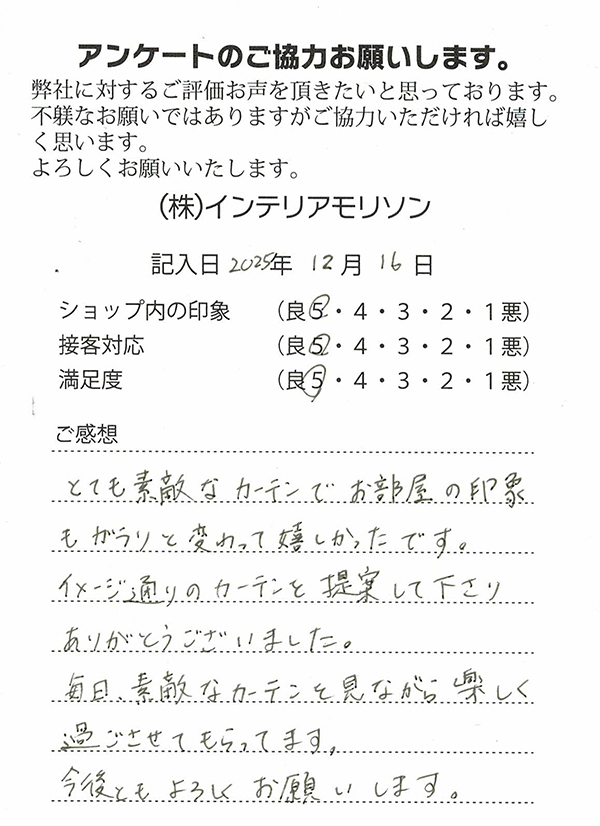 アンケートのご協力お願いします。
弊社に対するご評価お声を頂きたいと思っております。
不躾なお願いではありますがご協力いただければ嬉し
く思います。
よろしくお願いいたします。
(株)インテリアモリソン
記入日 2025年 12月 16日
ショップ内の印象 （良５・４・３・２・１悪）
接客対応 （良５・４・３・２・１悪）
満足度 （良５・４・３・２・１悪）
ご感想
とても素敵なカーテンでお部屋の印象
もガラリと変わって嬉しかったです。
イメージ通りのカーテンを提案して下さり
ありがとうございました。
毎日、素敵なカーテンを見ながら楽しく
過ごさせてもらってます。
今後ともよろしくお願いします。